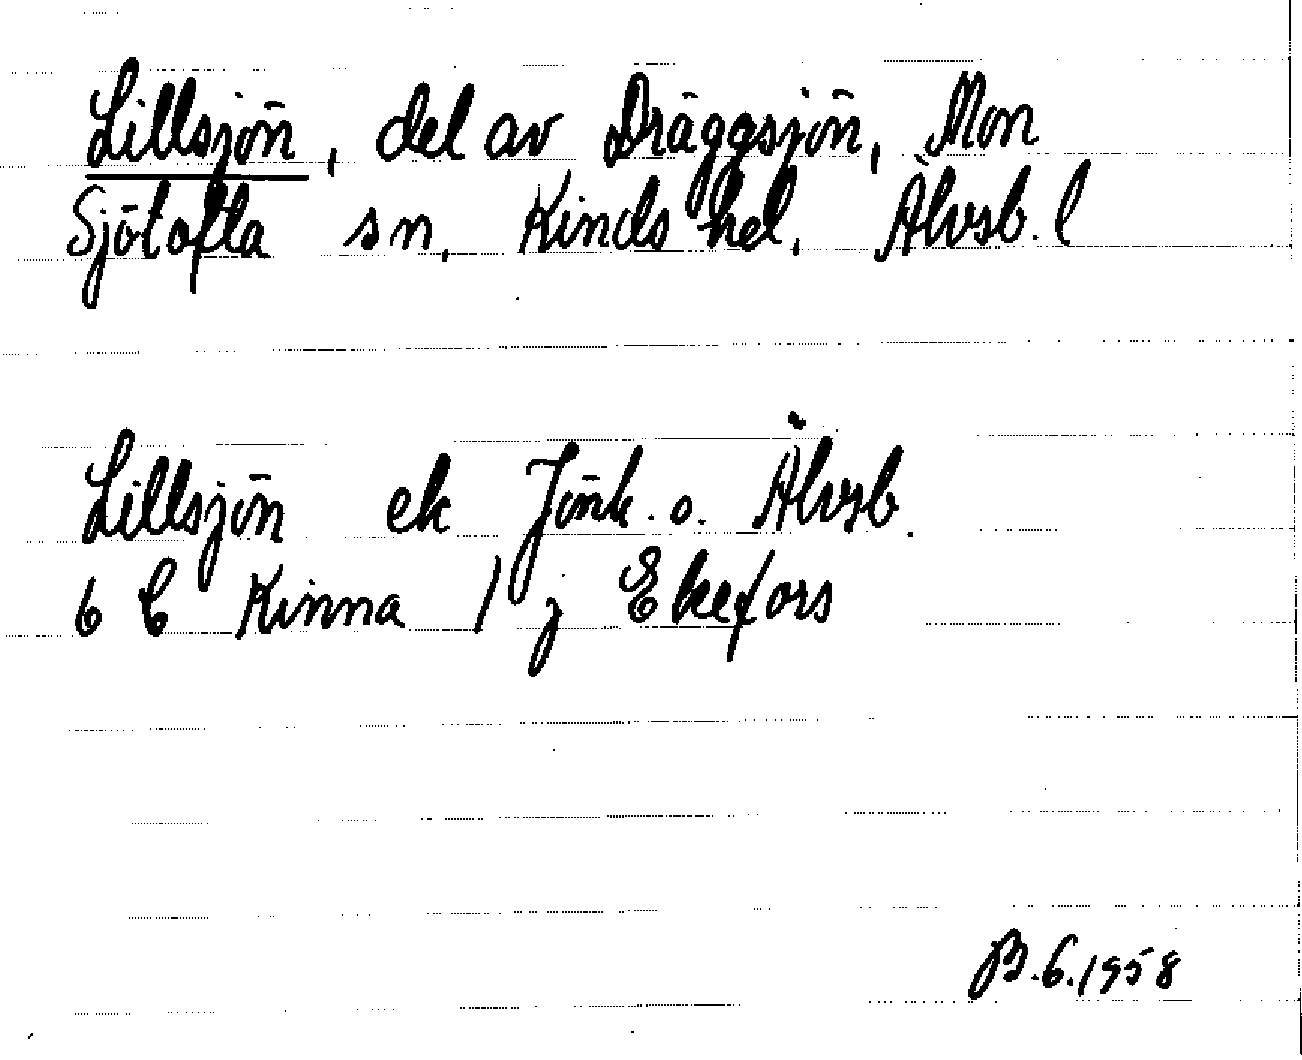 Lillsjön, del av Dräggsjön, Mon
Sjötofta sn, Kinds hd, Älvsb. l
Lillsjön ek Jönk. o. Älvsb.
6 C Kinna 1 j Ekefors
B.G.1958